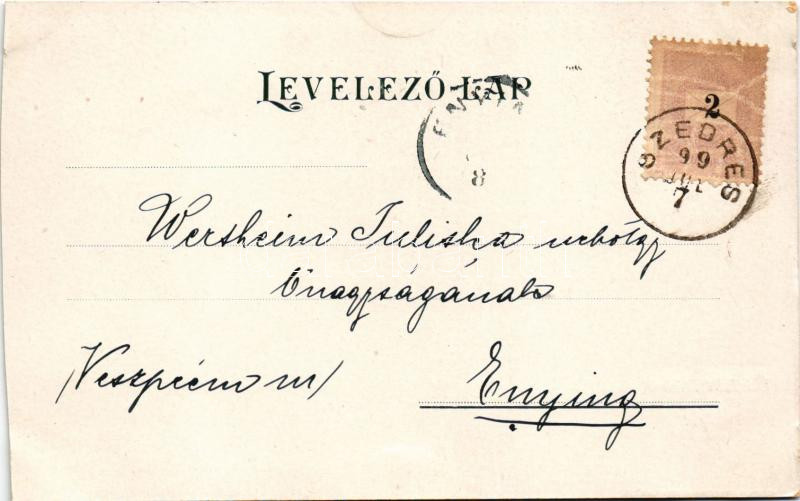 LEVELEZŐ-LAP
ENYIN
8
2
SZEDRES
99
JUL.
7
Wertheim Juliska urhölgy
Őnagyságának
/Veszprém m/
Enying